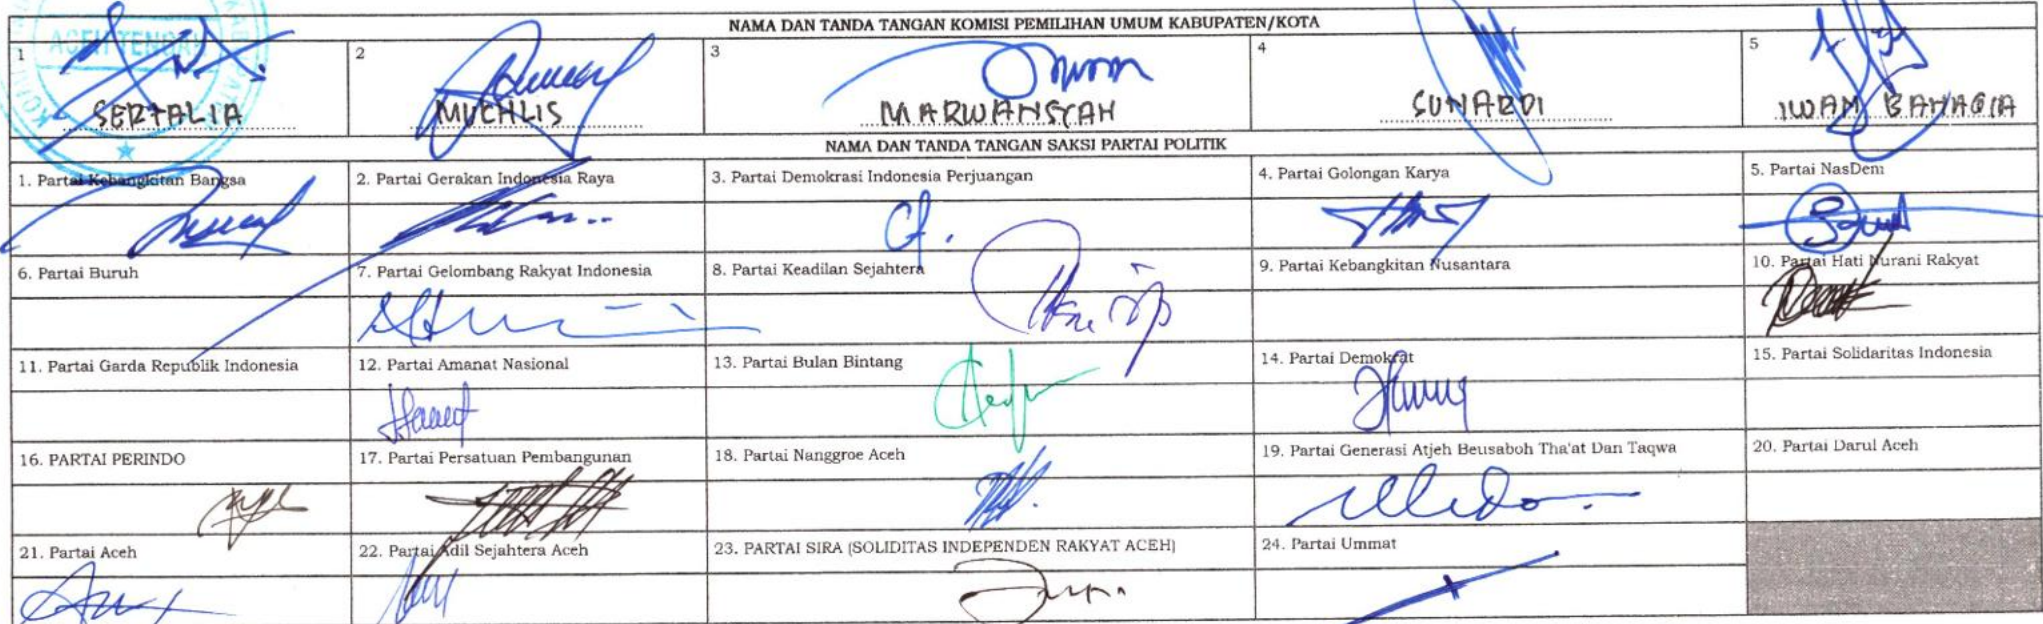 ACEH TENGAH
NAMA DAN TANDA TANGAN KOMISI PEMILIHAN UMUM KABUPATEN/KOTA
1 2 3 4 5
SERTALIA MUCHLIS MARWANSYAH SUNARDI IWAN BAHAGIA
NAMA DAN TANDA TANGAN SAKSI PARTAI POLITIK
1. Partai Kebangkitan Bangsa 2. Partai Gerakan Indonesia Raya 3. Partai Demokrasi Indonesia Perjuangan 4. Partai Golongan Karya 5. Partai NasDem
6. Partai Buruh 7. Partai Gelombang Rakyat Indonesia 8. Partai Keadilan Sejahtera 9. Partai Kebangkitan Nusantara 10. Partai Hati Nurani Rakyat
11. Partai Garda Republik Indonesia 12. Partai Amanat Nasional 13. Partai Bulan Bintang 14. Partai Demokrat 15. Partai Solidaritas Indonesia
16. PARTAI PERINDO 17. Partai Persatuan Pembangunan 18. Partai Nanggroe Aceh 19. Partai Generasi Atjeh Beusaboh Tha'at Dan Taqwa 20. Partai Darul Aceh
21. Partai Aceh 22. Partai Adil Sejahtera Aceh 23. PARTAI SIRA (SOLIDITAS INDEPENDEN RAKYAT ACEH) 24. Partai Ummat